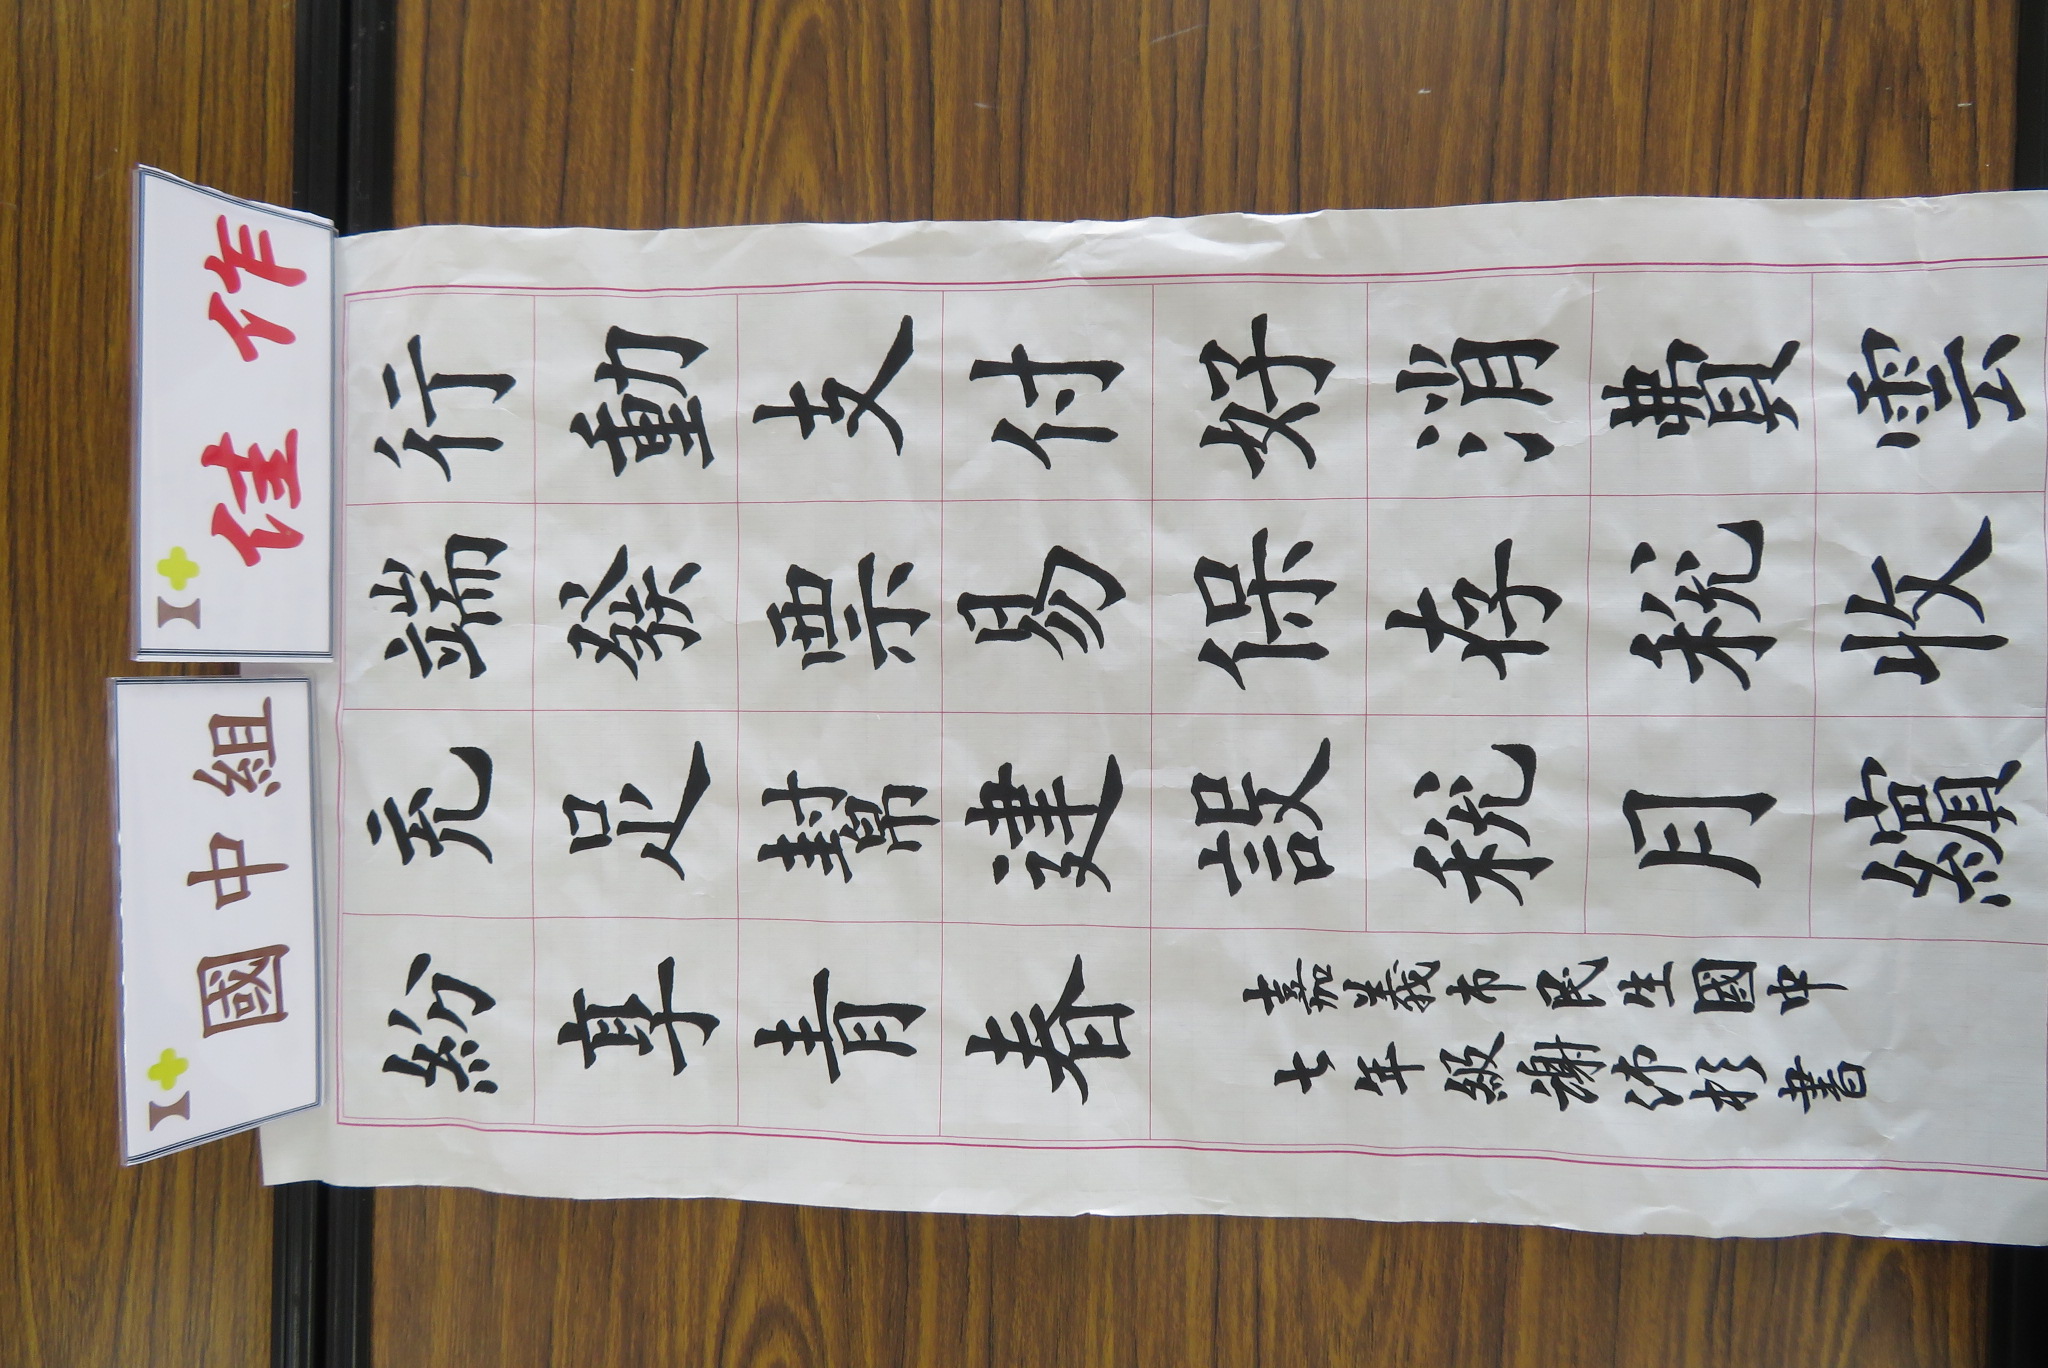 國中組
佳作
行動支付好消費雲
端發票易保存稅收
充足幫建設稅月繽
紛享青春
嘉義市民生國中
七年級謝書